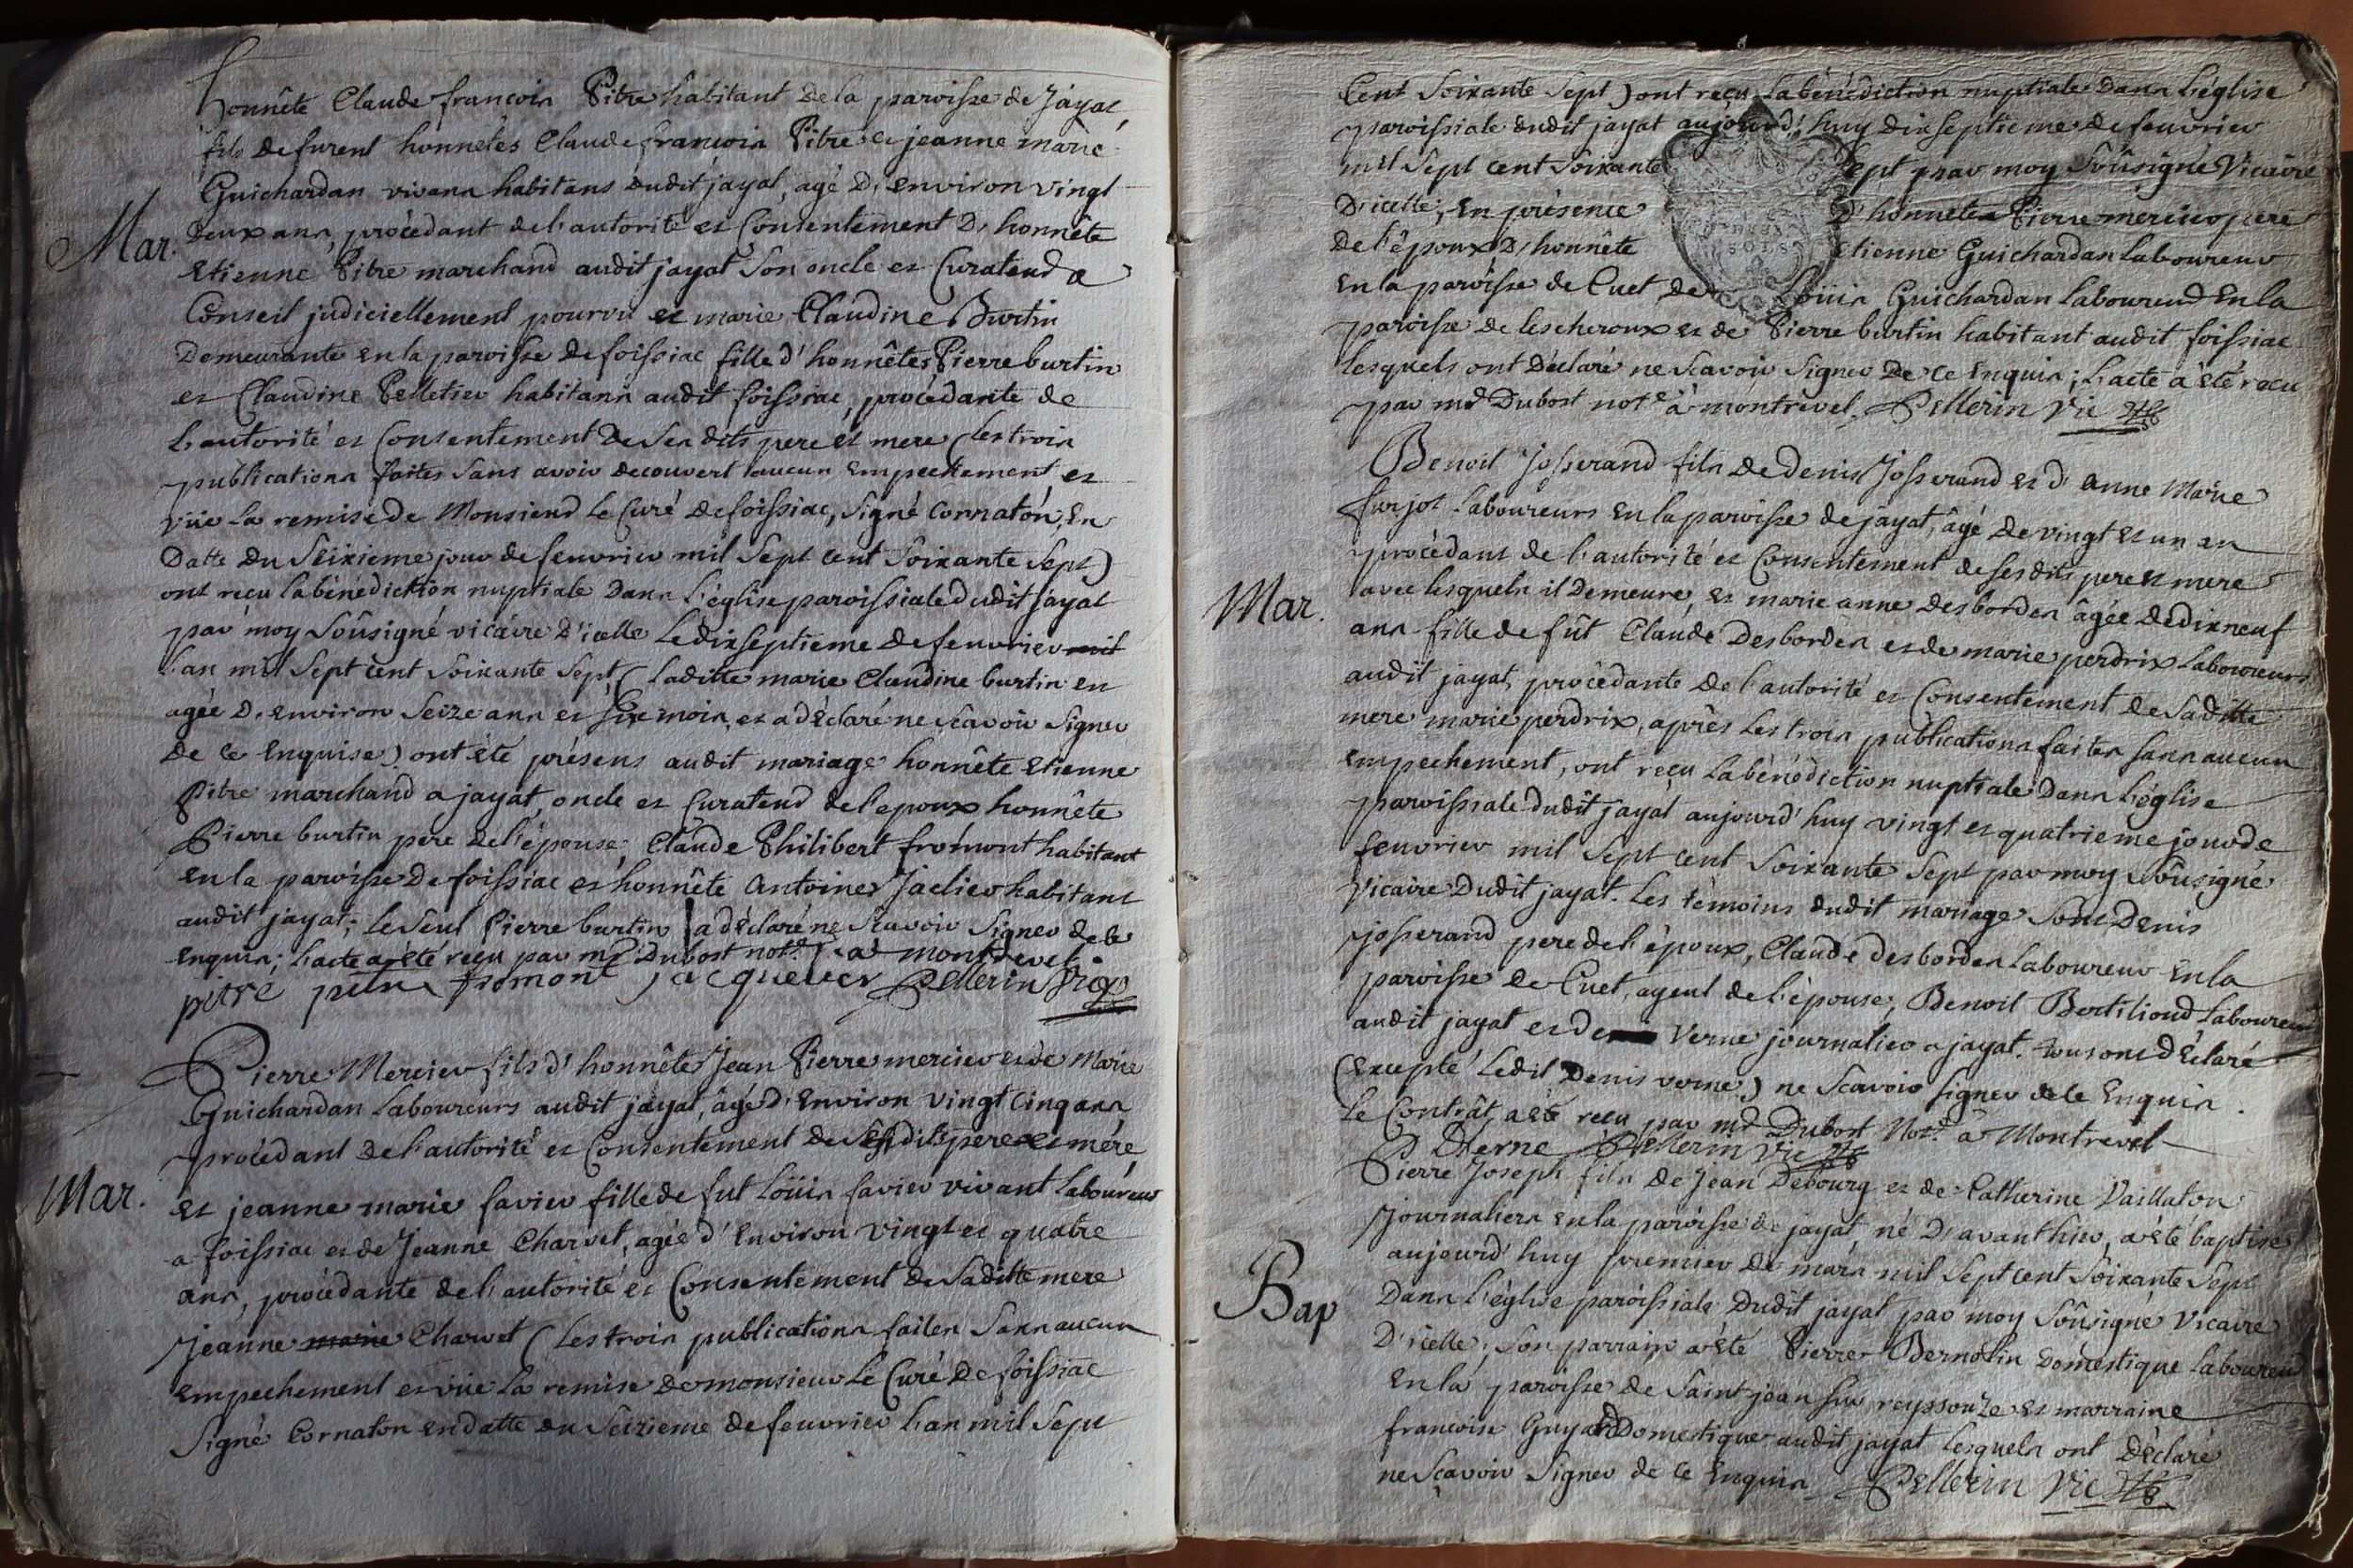 honnête Claude francois Pitre habitant de la paroisse de Jayat,
fils de furent honnetes Claude francois Pitre et jeanne marie
Guichardan vivans habitans dudit jayat, agé d'environ vingt
Mar.
deux ans, procédant de l'autorité et Consentement d'honnête
Etienne Pitre marchand audit jayat son oncle et Curateur a
Conseil judiciellement pourvu et marie Claudine Burtin
Demeurante en la paroisse de foissiac fille d'honnêtes Pierre burtin
et Claudine Pelletier habitans audit foissiac, procédante de
l'autorité et Consentement de ses dits pere et mere (les trois
publications faites sans avoir decouvert aucun Empechement et
vüe la remise de Monsieur le Curé de foissiac, signé Cornaton, En
Datte du Seixieme jour de feuvrier mil Sept cent Soixante Sept)
ont reçu la bénédiction nuptiale dans l'église paroissiale dudit jayat
par moy Soûsigné vicaire d'icelle le dixseptieme de feuvrier mil
l'an mil Sept cent Soixante Sept (laditte marie Claudine burtin en
agée d'environ Seize ans et six mois, et a déclaré ne scavoir signer
de ce Enquise) ont été présens audit mariage honnête Etienne
Pitre marchand a jayat, oncle et Curateur de l'epoux honnête
Pierre burtin pere de l'épouse; Claude Philibert fromont habitant
en la paroisse de foissiac et honnête Antoine Jaclier habitant
audit jayat; le seul Pierre burtin a déclaré ne scavoir signer de ce
Enquis; l'acte a été reçu par me Dubost note a montrevel
pitre pitre fromont Pellerin Vic
Pierre Mercier fils d'honnête Jean Pierre mercier et de Marie
Guichardan Laboureurs audit jayat, âgé d'Environ vingt Cinq ans,
procédant de l'autorité et Consentement de sesdits pere et mére,
Mar.
et jeanne marie favier fille de fut Loüis favier vivant Laboureur
a foissiac et de Jeanne Charvet, agée d'Environ vingt et quatre
ans, procédante de l'autorité et Consentement de Saditte mere
Jeanne marie Charvet (Les trois publications faites Sans aucun
Empechement et vüe la remise de monsieur le Curé de foissiac
Signé Cornaton en datte du Seizieme de feuvrier l'an mil Sept
Cent Soixante Sept) ont reçu la bénédiction nuptiale dans l'église
paroissiale dudit jayat aujourd'huy dix septieme de feuvrier
mil Sept cent Soixante Sept par moy Soûsigné Vicaire
D'icelle; En présence d'honnetes Pierre mercier pere
de l'époux d'honnête Etienne Guichardan Laboureur
en la paroisse de Cuet de Loüis Guichardan Laboureur En la
paroisse de lescheroux et de Pierre burtin habitant audit foissiac
lesquels ont déclaré ne scavoir signer de ce Enquis; l'acte a été reçu
par me Dubost note à montrevel. Pellerin Vic
Benoit Josserand fils de denis Josserand et d'anne Marie
furjot Laboureurs en la paroisse de jayat, âgé de vingt et un an
procédant de l'autorité et Consentement de sesdits pere et mere
Mar.
avec lesquels il Demeure, et marie anne desbordes âgée de dixneuf
ans fille de fût Claude Desbordes et de marie perdrix Laboureurs
audit jayat, procédante de l'autorité et Consentement de Saditte
mere marie perdrix, après les trois publications faites sans aucun
Empechement, ont reçu la bénédiction nuptiale dans l'église
paroissiale dudit jayat aujourd'huy vingt et quatrieme jour de
feuvrier mil Sept cent Soixante Sept par moy Soûsigné
Vicaire dudit jayat. Les témoins dudit mariage Sont Denis
josserand pere de l'époux, Claude desbordes Laboureur en la
paroisse de Cuet, ayeul de l'épouse, Benoit Bertilioud Laboureur
audit jayat et de Verne journalier a jayat. tous ont déclaré
(Excepté ledit Denis verne) ne scavoir signer de ce Enquis.
Le Contrât a été reçu par me Dubost Note à Montrevel
D Verne Pellerin Vic
Pierre Joseph fils de Jean Debourg et de Catherine Vaillaton
Journaliers en la paroisse de jayat, né d'avant hier, a été baptisé
aujourd'huy premier de mars mil Sept cent Soixante Sept
Bap
Dans l'église paroissiale dudit jayat par moy Soûsigné Vicaire
D'icelle; Son parrain a été Pierre Bernolin Domestique Laboureur
En la paroisse de Saint jean sur reyssouze et marraine
francoise Guyard Domestique audit jayat lesquels ont déclaré
ne sçavoir signer de ce Enquis Pellerin Vic